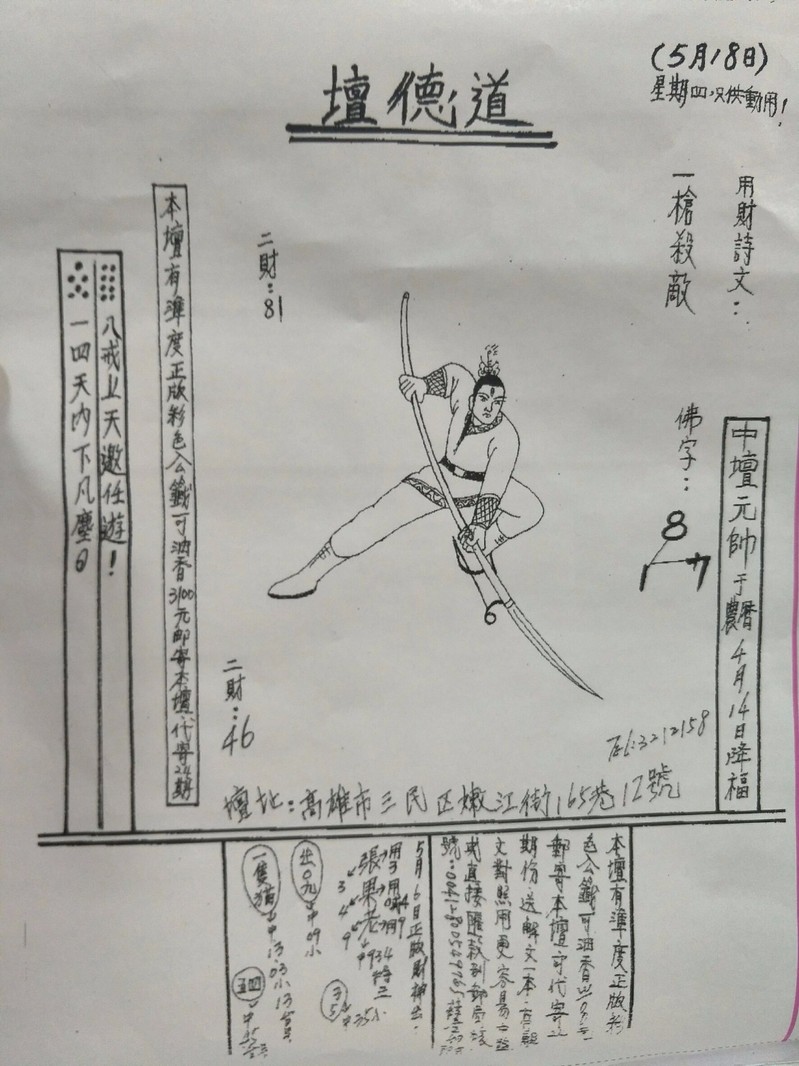 (5月18日)
星期四只供動用!
道德壇
用財詩文:
一槍殺敵
佛字:
8
1 ク
中壇元帥于農曆4月14日降福
二財:81
6
二財:46
本壇有準度正版彩色公籤可油香3100元郵寄本壇代寄24期
八戒上天遨任遊!
一四天內下凡塵。
Tel:3212158
壇址:高雄市三民区嫩江街165巷12號
本壇有準度正版彩
色公籤可油香
郵寄本壇可代寄
期份.送解文一本.
文對照用更容易
或直接匯款到郵局
號:
5月6日正版財神出:
張果老
3 4 9
出〇九中09小
一隻猫中13 03小13
五四